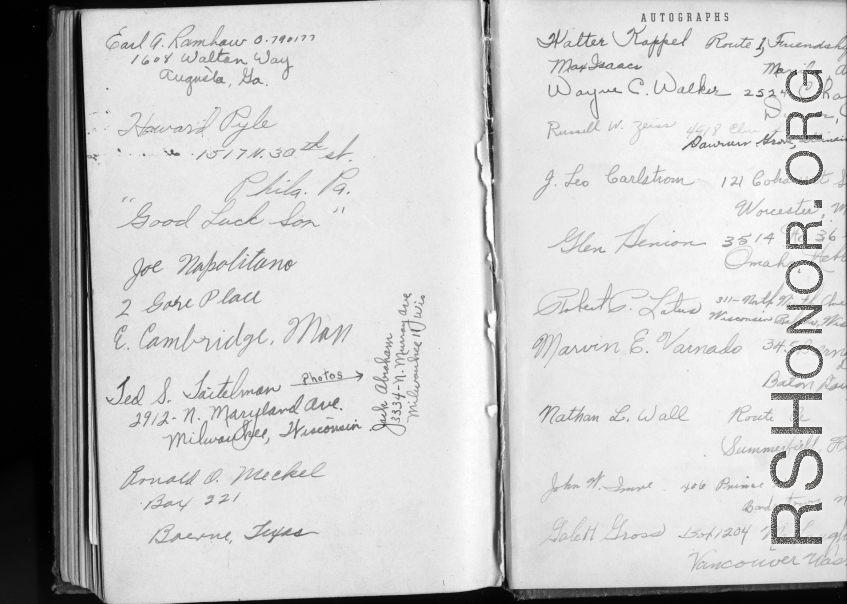 Earl A. Ramhaw O-790177
1608 Walton Way
Augusta, Ga.
Howard Pyle
1517 N. 30th st.
Phila. Pa.
"Good Luck Son"
Joe Napolitano
2 Gore Place
E. Cambridge, Mass
Ted S. Taitelman Photos
2912-N. Maryland Ave.
Milwaukee, Wisconsin
Jack Abraham
3334-N. Murray Ave
Milwaukee 11, Wis
Arnold O. Meckel
Box 221
Boerne, Texas
AUTOGRAPHS
Walter Kappel Route 1, Friendship
Max Isaacs
Wayne C. Walker 2524
Russell W. Zeiss 4618
Grove,
J. Leo Carlstrom 121
Worcester, M
Glen Henion 3514 No 36
Omaha, Neb
Robert C. Latus 311-North Ninth Ave
Wisconsin Rapids, Wis
Marvin E. Varnado 345
Baton Rou
Nathan L. Wall Route
Summerfield Fl
John W. 406 Prince
Gales Gross Box 1204
Vancouver Was
RSHONOR.ORG